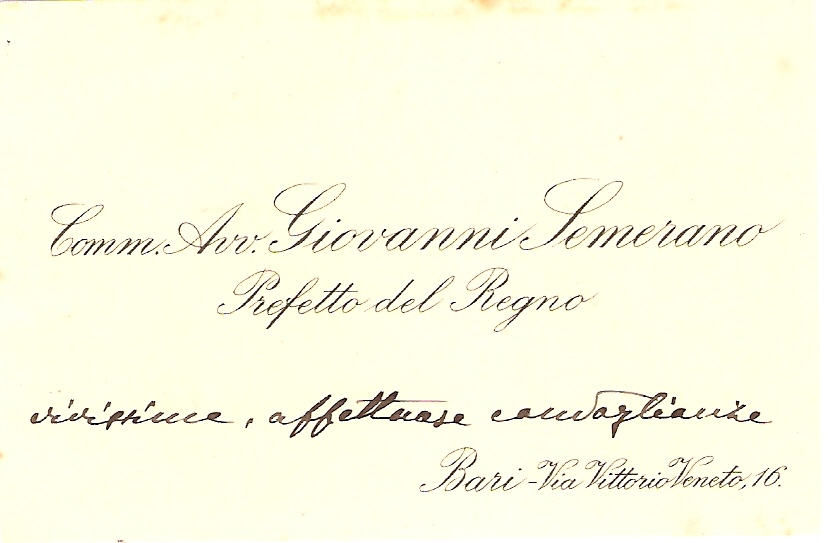 Comm. Avv. Giovanni Semerano
Prefetto del Regno
vivissime, affettuose condoglianze
Bari - Via Vittorio Veneto, 16.